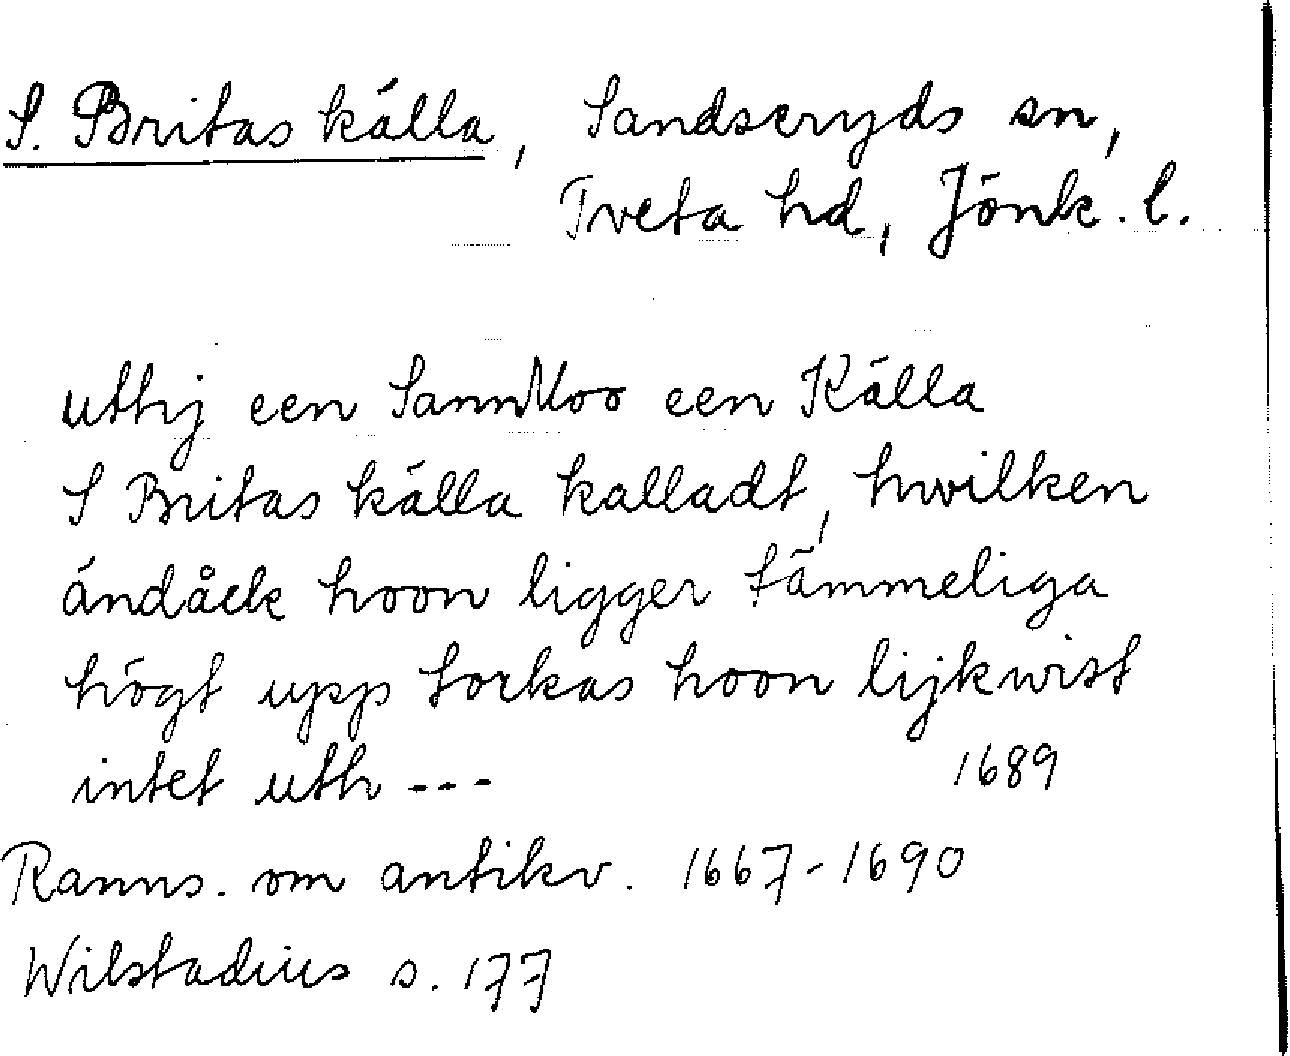 S. Britas källa, Sandseryds sn,
Tveta hd, Jönk. l.
uthj een SannMoo een Källa
S Britas källa kalladt, hwilken
ändåck hoon ligger tämmeliga
högt upp torkas hoon lijkwist
intet uth --- 1689
Ranns. om antikv. 1667-1690
Wilstadius s. 177